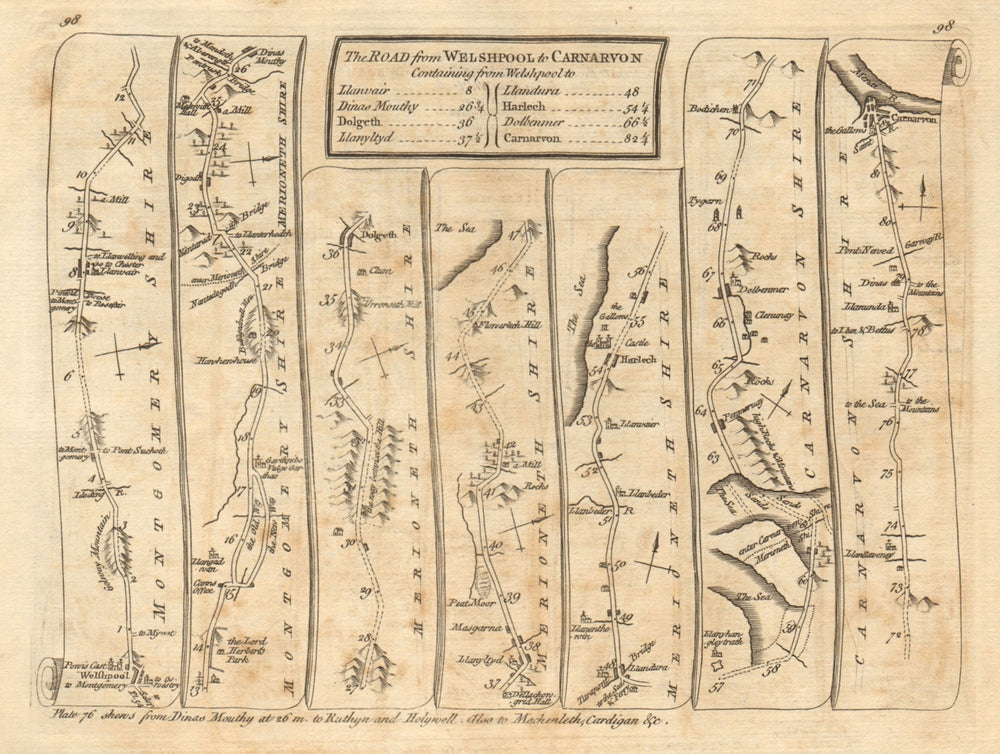 98
98
The ROAD from WELSHPOOL to CARNARVON
Containing from Welshpool to
Llanvair 8
Dinas Mouthy 26 3/4
Dolgeth 36
Llanyltyd 37 1/2
Llandura 48
Harlech 54 1/4
Dolbenmer 66 1/4
Carnarvon 82 1/4
12
11
10
a Mill
9
to Llanvelling and
so to Chester
8
Llanvair
6
5
to Montgomery
to Pont Sucheth
4
R.
3
2
1
to Mynot
Powis Cast
Welshpool
to Montgomery
to Oswestry
MONTGOMERY SHIRE
Dinas
Mouthy
26
Bridge
25
a Mill
24
23
Bridge
to Llanterheath
22
enter Merioneth Shire
Bridge
21
Hanshenshouse
19
18
17
the Old Way
the New Way
16
Canns
Office
15
14
the Lord
Herberts
Park
13
MERIONETH SHIRE
MONTGOMERY SHIRE
Dolgeth
36
Clum
35
34
33
31
30
29
28
27
MERIONETH SHIRE
The Sea
47
46
45
44
43
42
a Mill
41
Rocks
40
Peat Moor
39
Masgarna
38
Llanyltyd
37
MERIONETH SHIRE
56
The Sea
the
Gallons
55
the
Castle
54
Harlech
53
Llanvaier
52
Llanbeder
Llanbeder
51
R
50
49
48
Bridge
Llandura
to the Sea
MERIONETH SHIRE
71
Bodichen
70
69
Tygarn
68
Rocks
67
Dolbenmer
66
Clenunay
65
Rocks
64
Pennerug
high Rocks & Mountains
63
The Sea
Sands
Sands
enter Carnar
Merioneth
60
The Sea
59
58
57
CARNARVON SHIRE
Menai
Carnarvon
the Gallons
Saint
R.
81
80
Pont Nerved
79
Dinas
to the
Mountains
Llanunda
78
to Llan & Bettus
77
to the Sea
to the
Mountains
76
75
74
73
72
CARNARVON SHIRE
Plate 76 shews from Dinas Mouthy at 26 m. to Ruthyn and Holywell. Also to Machenleth, Cardigan &c.